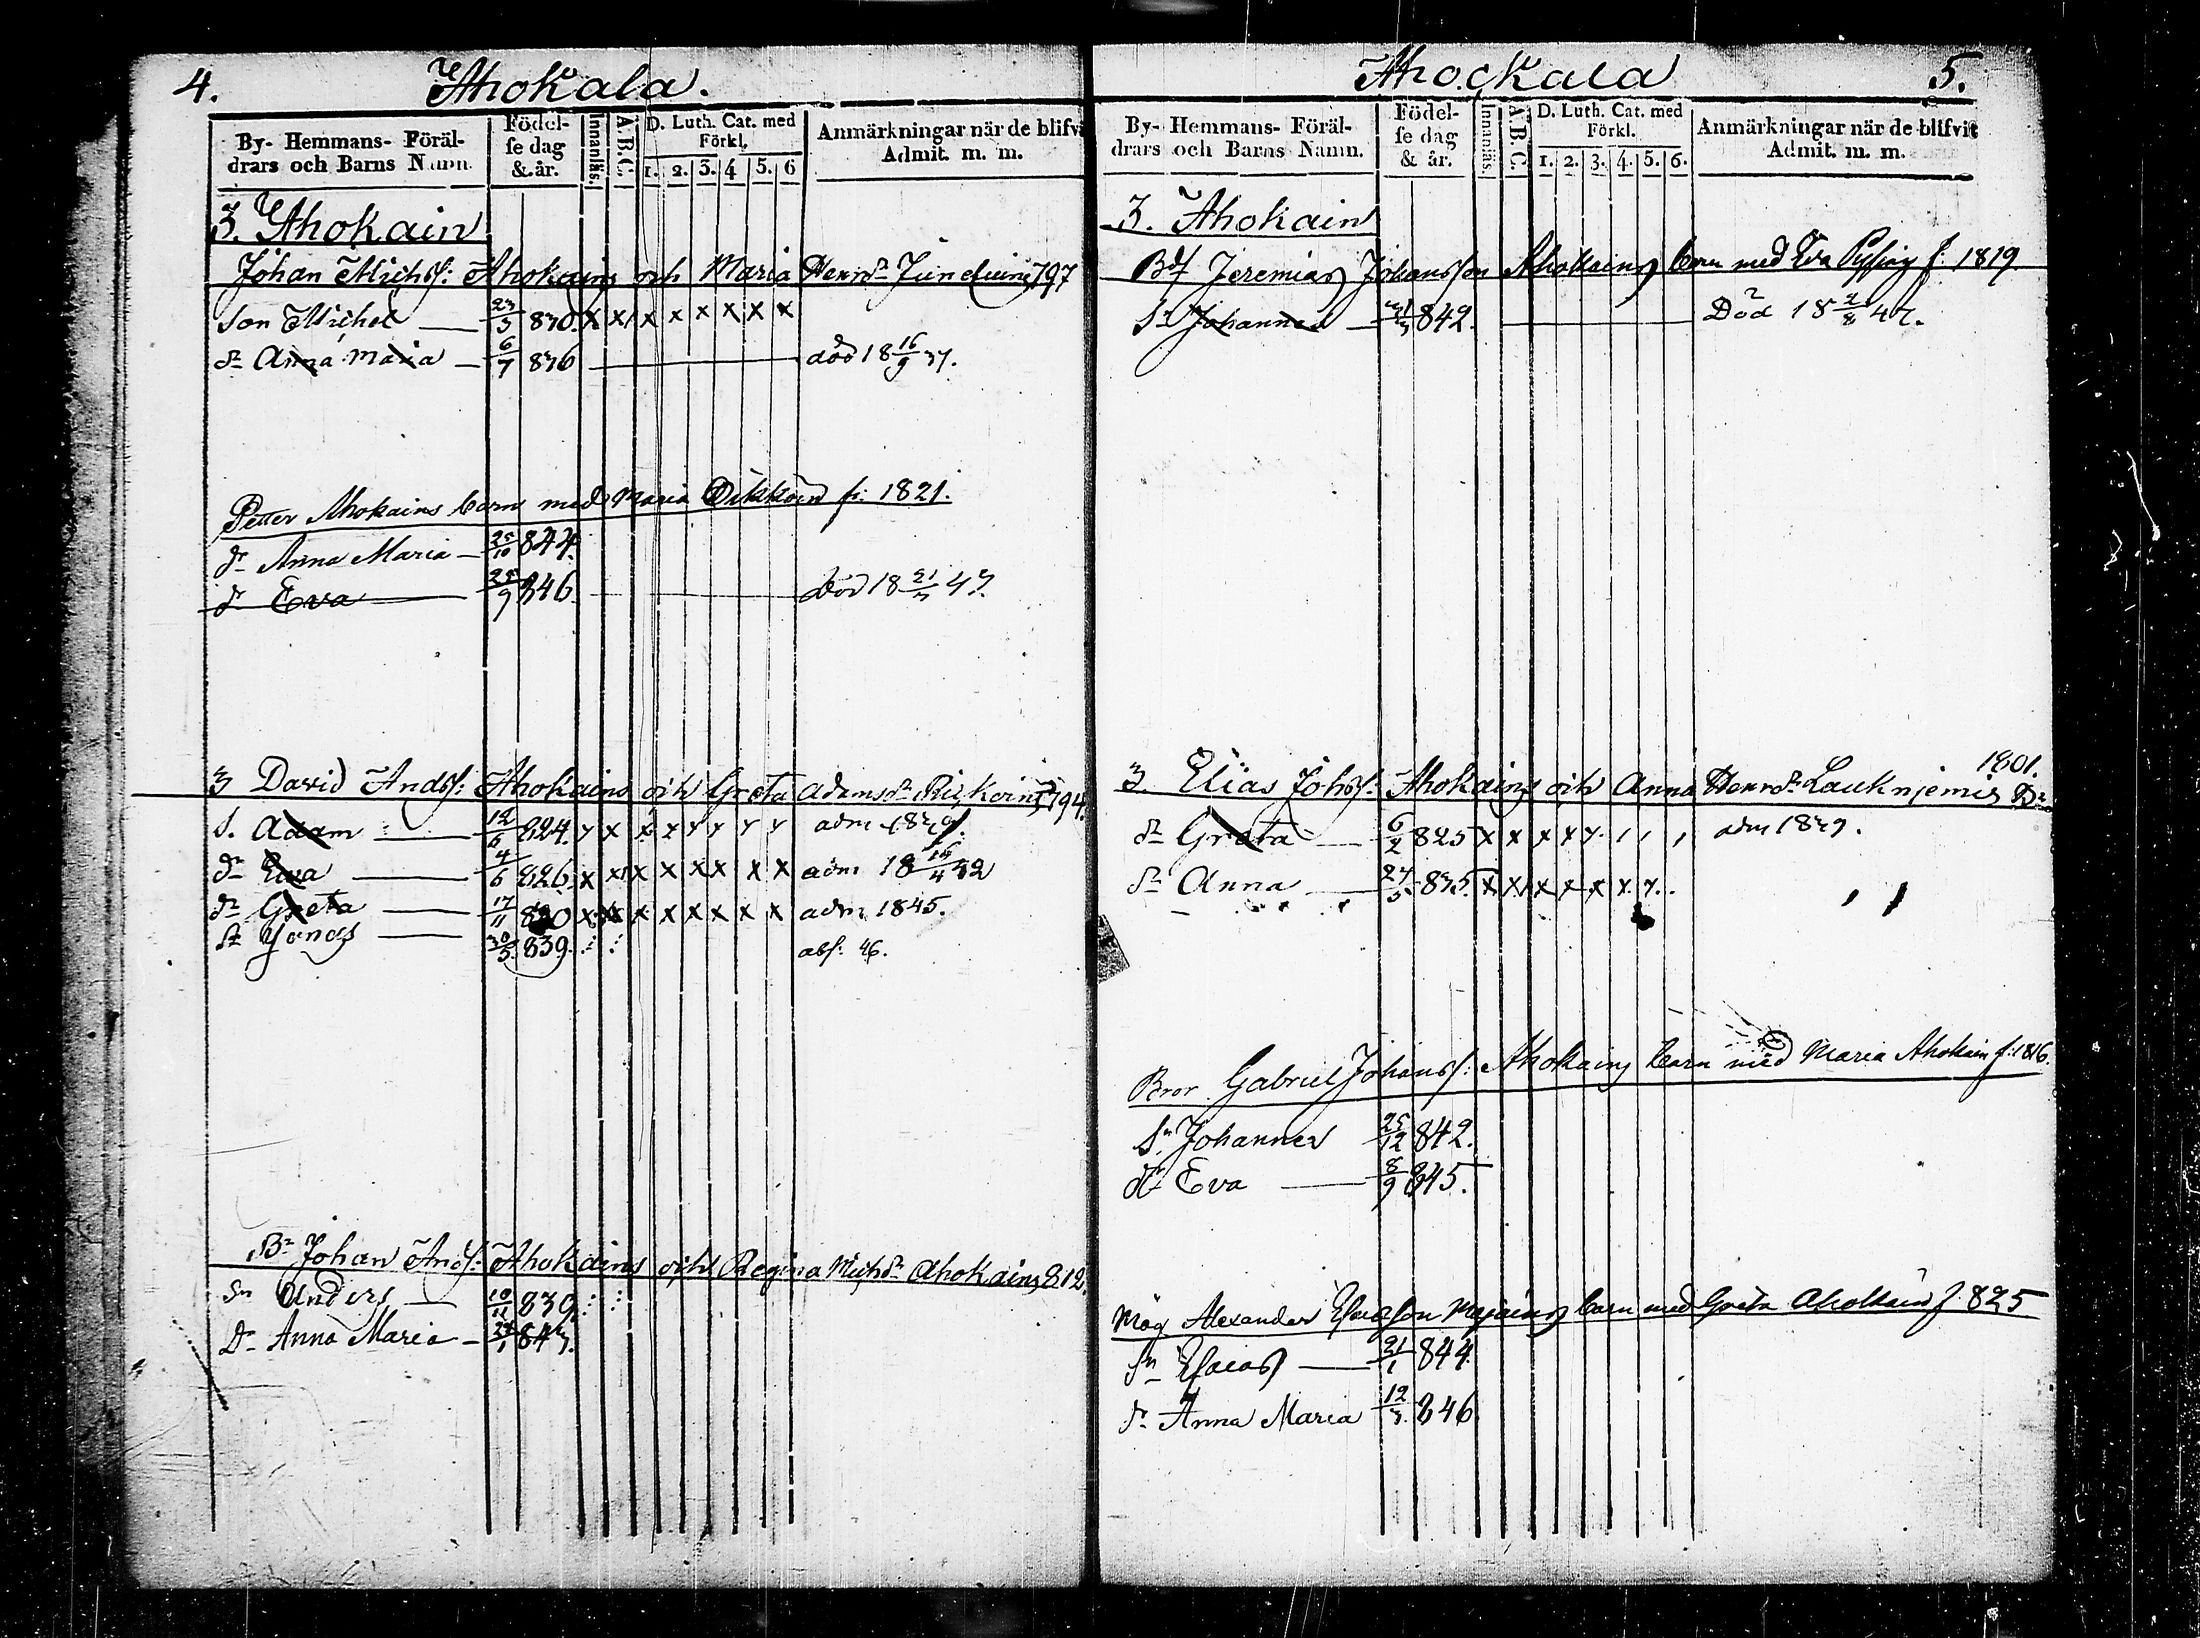 4. Ahokala.
By- Hemmans- Föräl-
drars och Barns Namn.
Födel-
se dag
& år.
Innanläs.
A. B. C.
D. Luth. Cat. med
Förkl.
1. 2. 3. 4 5. 6
Anmärkningar når de blifvi
Admit. m. m.
3. Ahokain
Johan Michs: Ahokains och Maria Henrsdr 797
Son Michel 23/5 830. x x x x x x x x
dr Anna Maria 6/7 836 död 18 16/9 37.
Petter Ahokains barn med Maria f: 1821.
dr Anna Maria 25/10 844.
dr Eva 9 846. död 18 21 47.
3 David Ands: Ahokains och Greta Adamsdr 794.
S. Adam 12/6 824. x x x x x x x x adm 1839.
dr Eva 4/6 826. x x x x x x x x adm 18 14/4 42
dr Greta 17/11 830 x x x x x x x x adm 1845.
Sn Jonas 30/5 839. abs: 46.
Br Johan Ands: Ahokains och Regina Michsdr Ahokains 812.
Sn Anders 10/11 839
Dr Anna Maria 843.
Ahockala 5.
By- Hemmans- Föräl-
drars och Barns Namn.
Födel-
se dag
& år.
Innanläs.
A. B. C.
D. Luth. Cat. med
Förkl.
1. 2. 3. 4. 5. 6.
Anmärkningar når de blifvit
Admit. m. m.
3. Ahokain
Jeremias Johansson Ahokains barn med Eva f: 1819
Sn Johannes 842. Död 18 2/8 42.
1801.
3. Elias Johs: Ahokains och Anna Henrsdr
dr Greta 6/2 825 x x x x x adm 1839.
dr Anna 27/5 835. x x x x x x x
Bror Gabriel Johanss: Ahokains barn med Maria Ahokain f: 1816.
Sn Johannes 25/12 842.
dr Eva 8/9 845.
Måg Alexander barn med Greta Ahokain f: 825
Sn Esaias 21/1 844.
dr Anna Maria 12 846